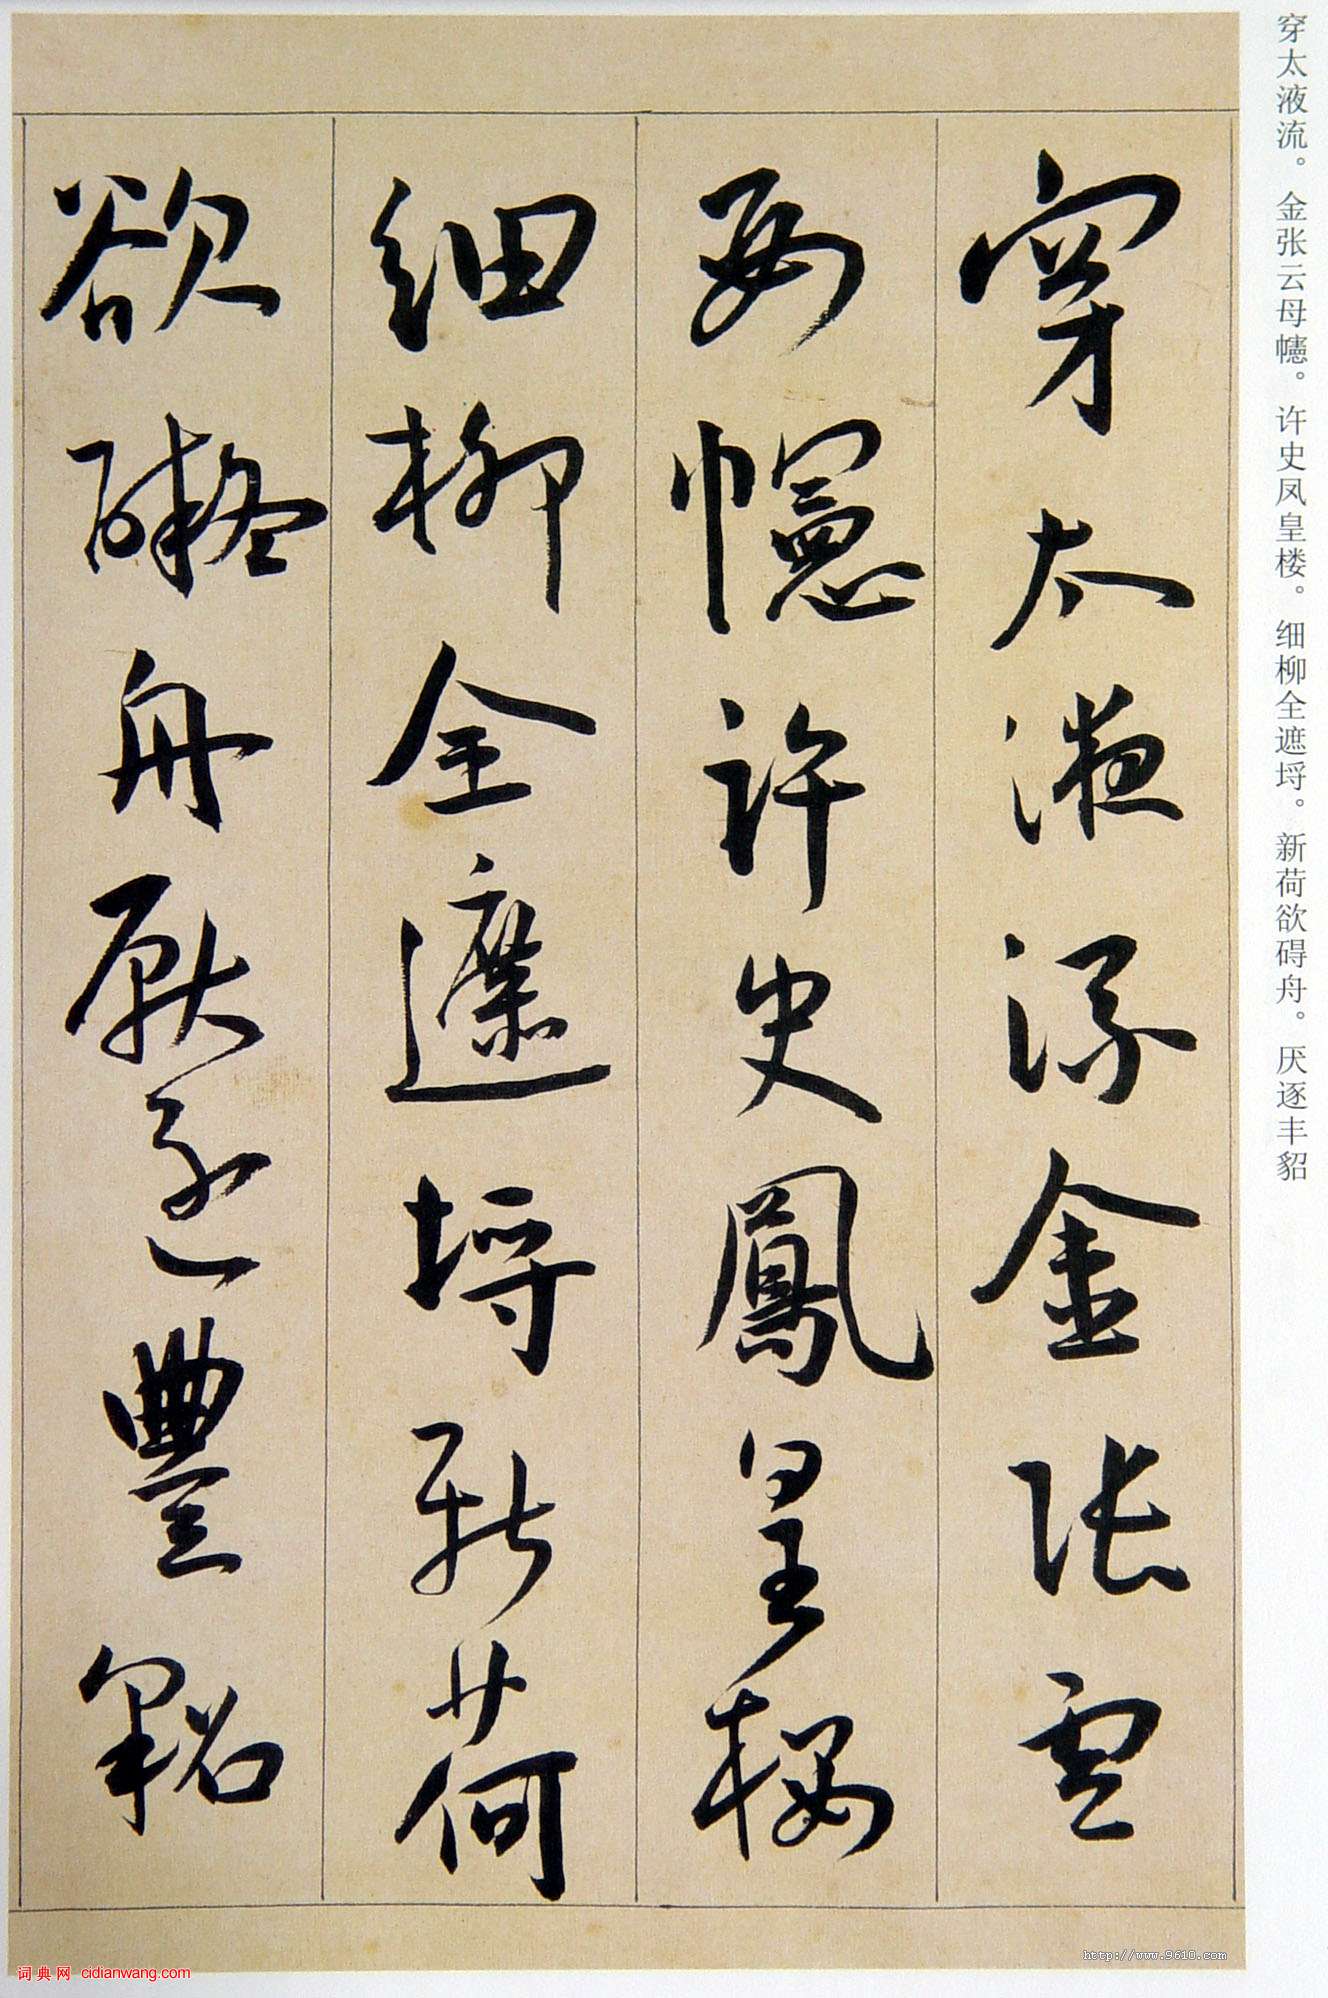 穿太液流。金张云母幰。许史凤皇楼。细柳全遮埒。新荷欲碍舟。厌逐丰貂
穿太液流金張雲
母幰許史鳳皇樓
細柳全遮埒新荷
欲礙舟厭逐豐貂
http://www.9610.com
词典网 cidianwang.com